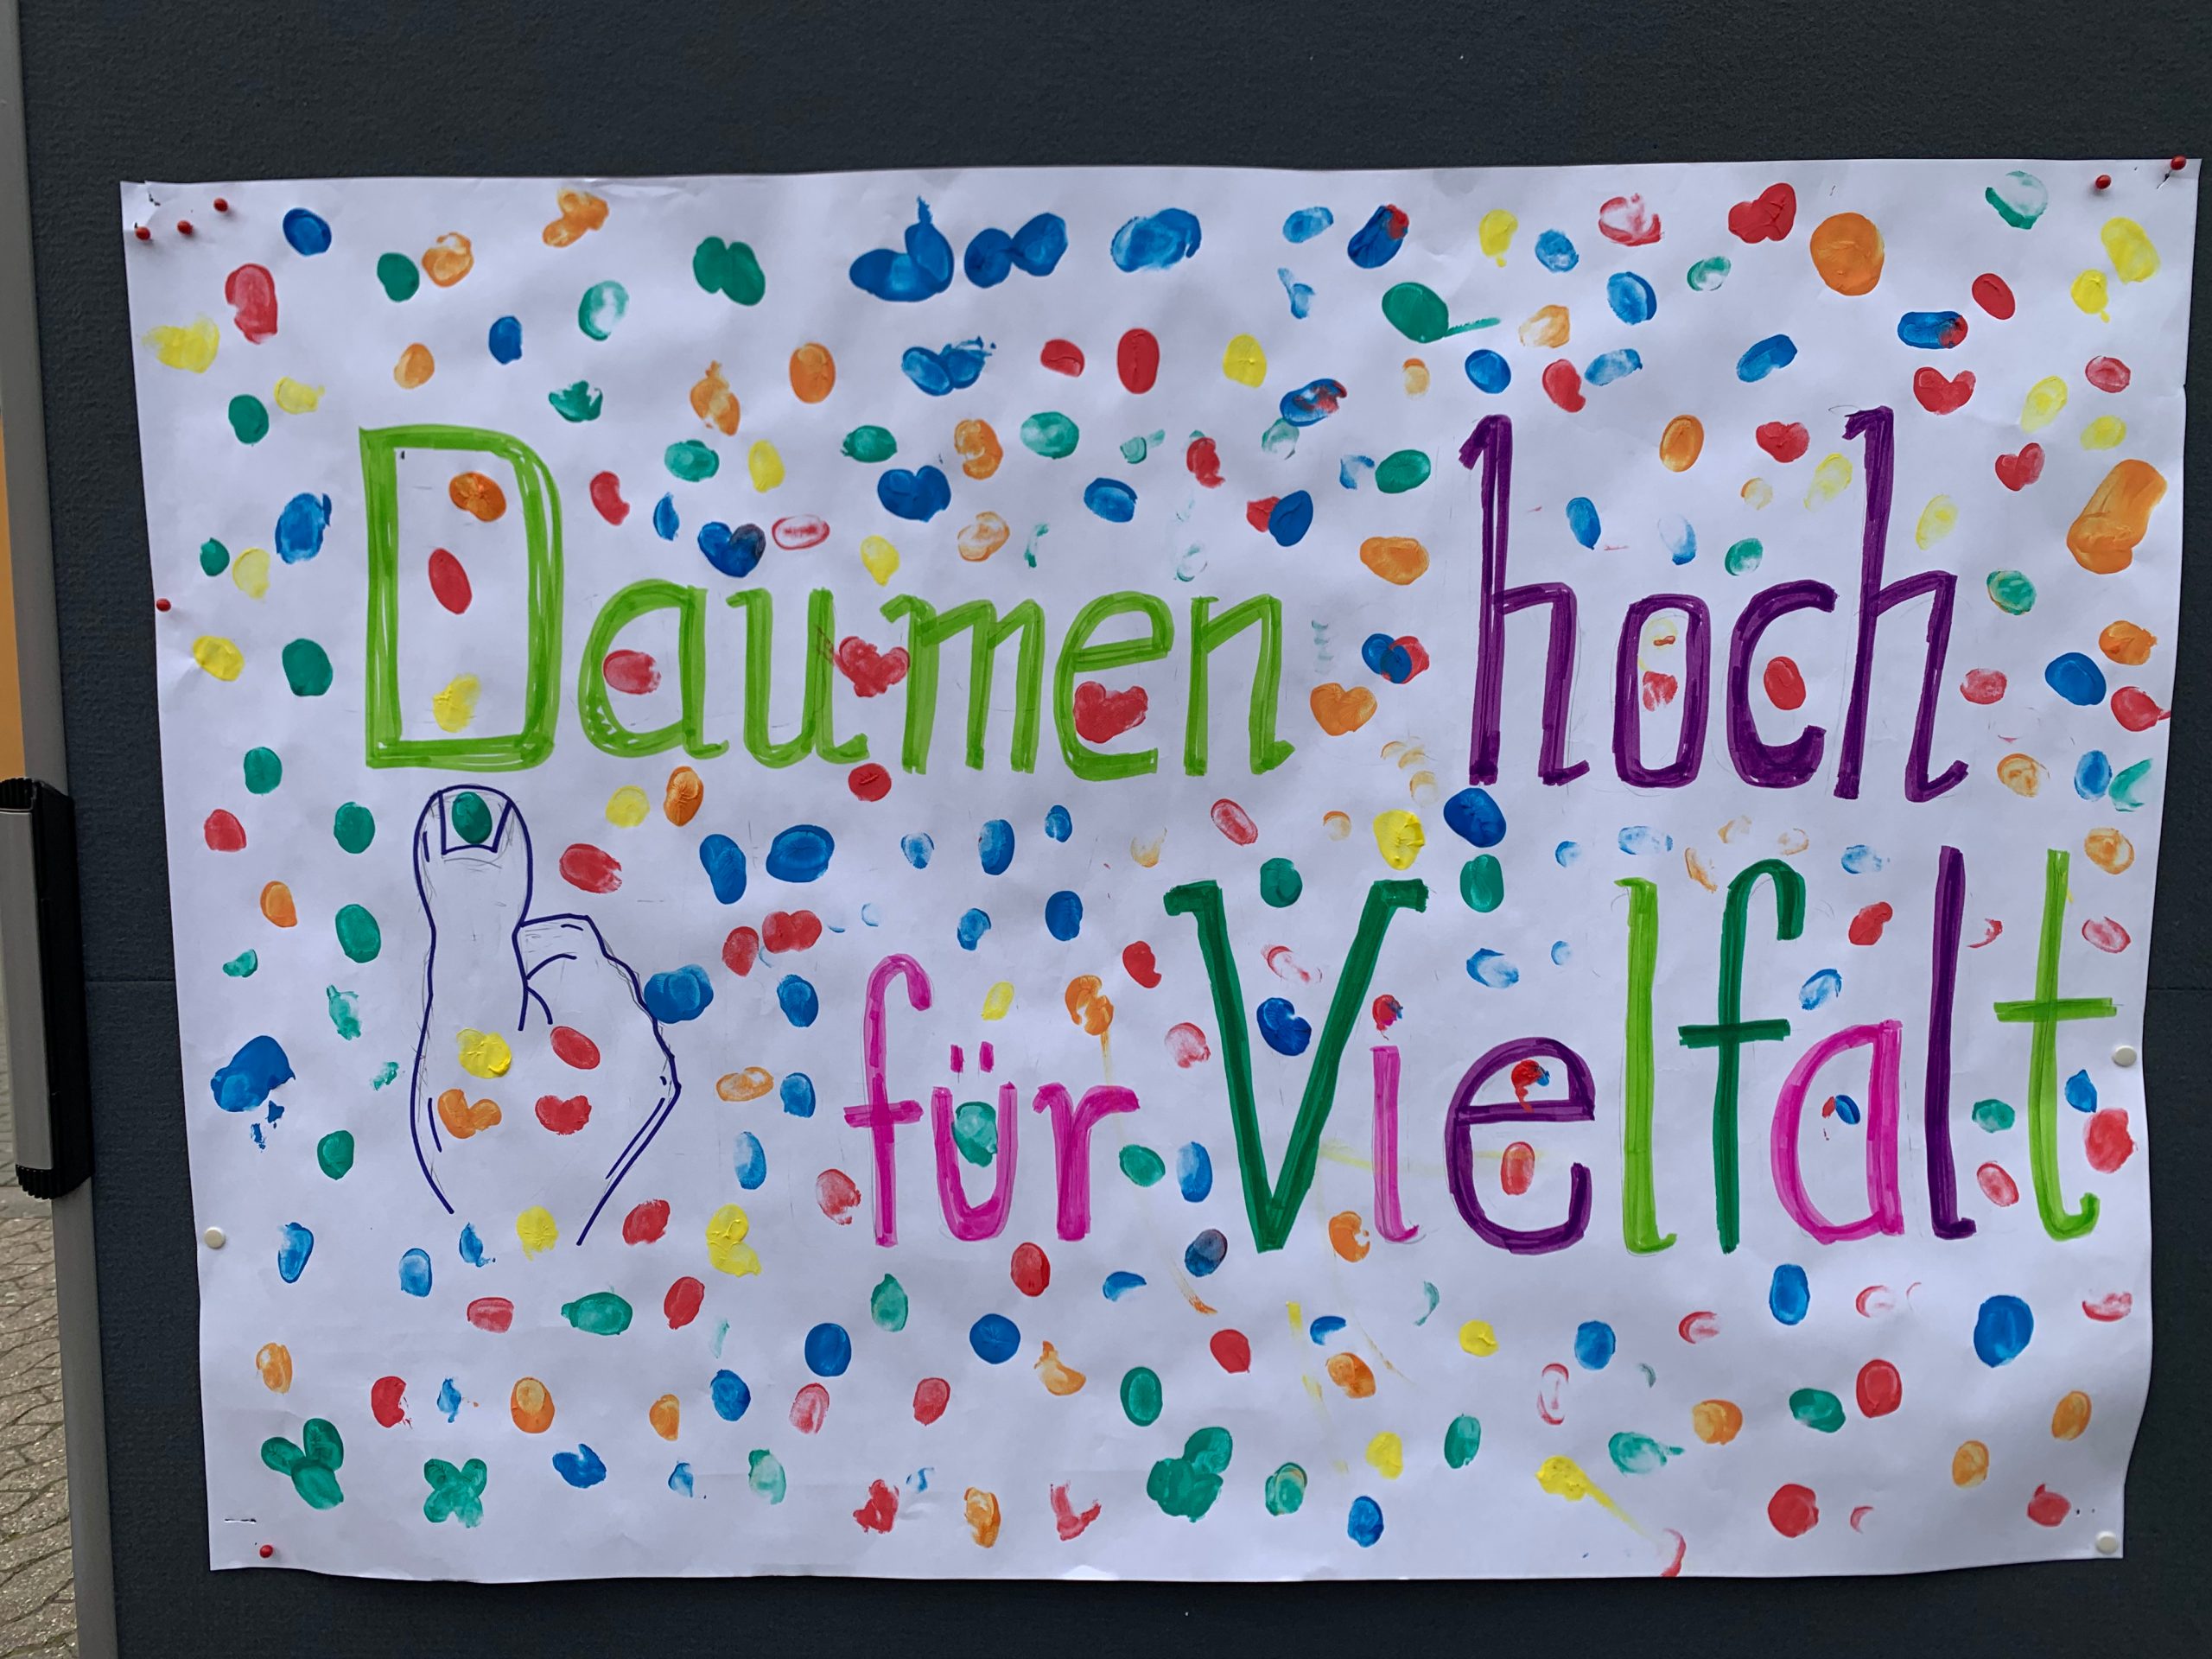 Daumen hoch
für Vielfalt